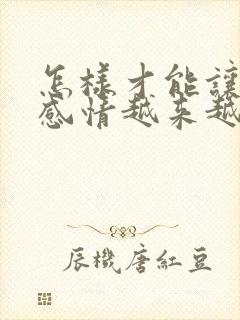 怎樣才能讓
感情越来越
辰機唐紅豆